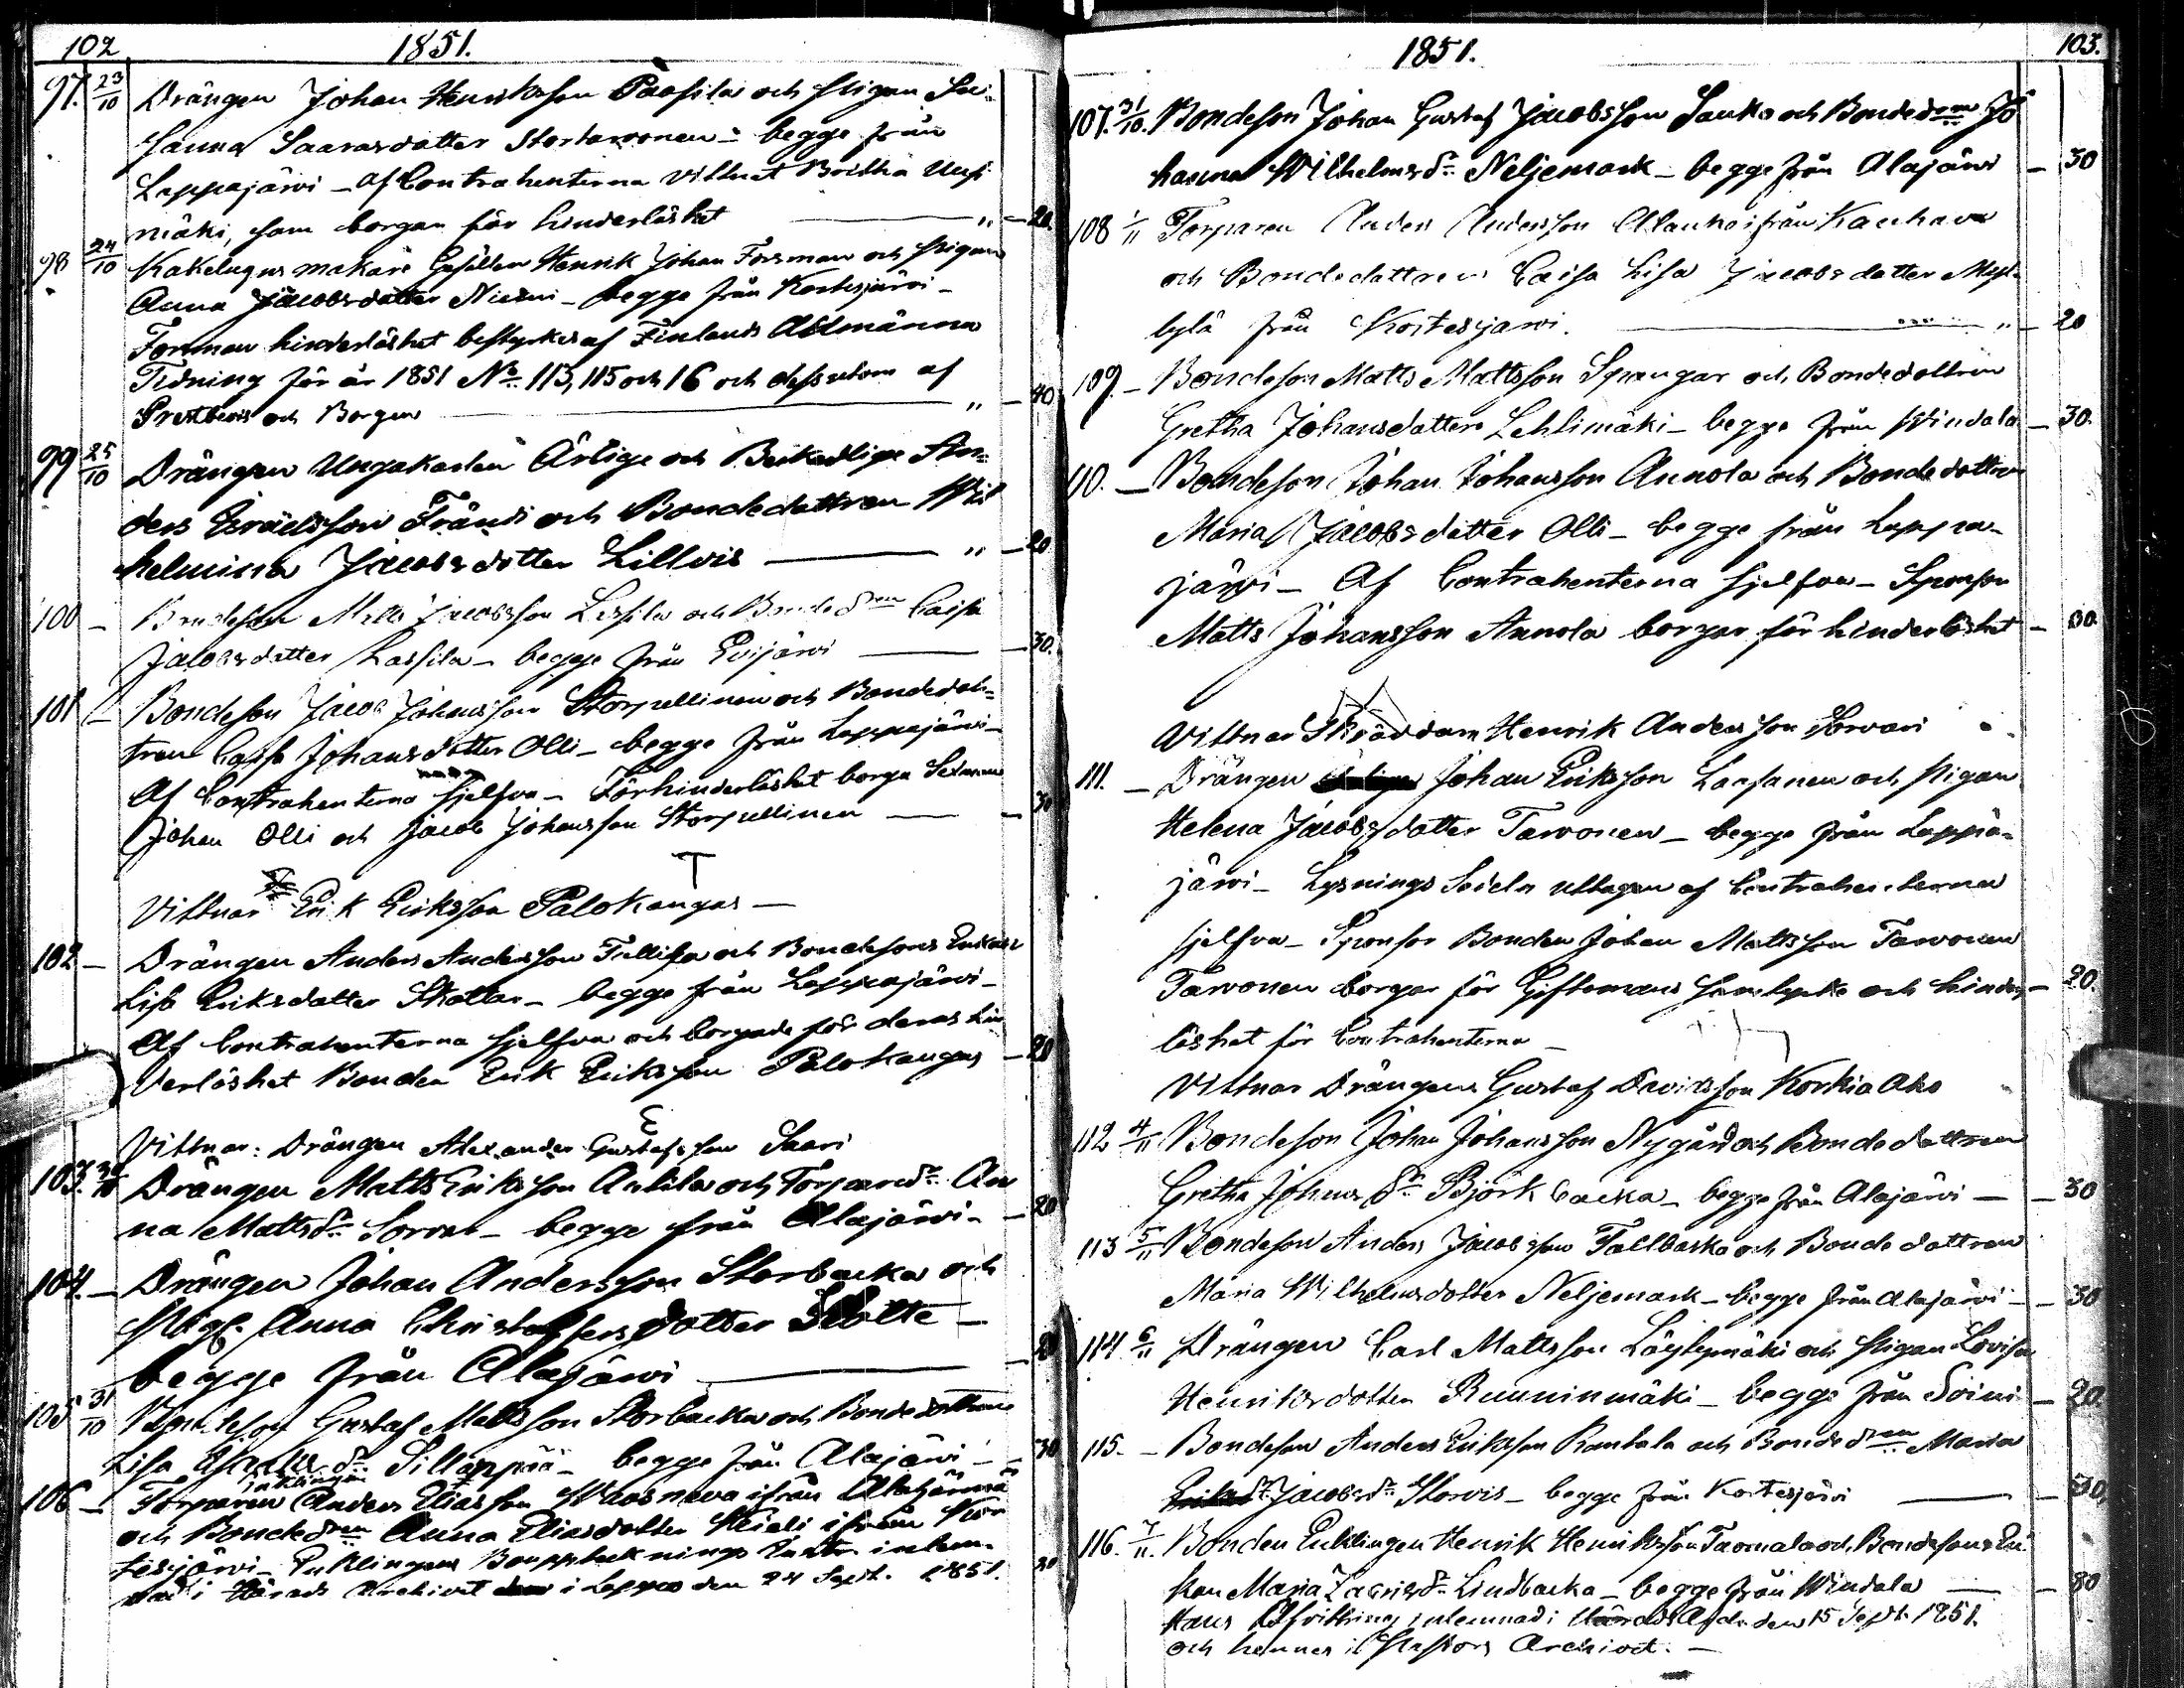 102
1851.
97. 23/10 Drängen Johan Henriksson Paasila och pigan Su-
sanna Saarasdotter Stortarvonen - begge från
Lappajärvi - af Contrahenterna vittnat Britha Uusi
mäki, som borgen för hinderlöshet " - 20.
98 24/10 Kakelugns makare Gesällen Henrik Johan Forsman och pigan
Anna Jacobsdotter Niemi - begge från Kortesjärvi -
Forsman hinderlöshet bestyrkes af Finlands Allmänna
Tidning för år 1851 No 113, 115 och 16 och dessutom af
Prestbevis och Borgen " - 40
99 25/10 Drängen Ungakarlen Ärlige och Beskedlige An-
ders Israelsson Fränti och Bondedottren Wil
helmina Jacobsdotter Lillvis " - 20.
100 - Bondeson Matts Jacobsson Lassila och Bonded:ren Caisa
Jacobsdotter Lassila - begge från Evijärvi - 30.
101 - Bondeson Jacob Johansson Storpellinen och Bondedot-
tren Caisa Johansdotter Olli - begge från Lappajärvi -
Af Contrahenterna sjelfva - För hinderlöshet borga Sexman
Johan Olli och Jacob Johansson Storpellinen - 30
Vittnar Erik Eriksson Palokangas -
102 - Drängen Anders Andersson Tullisa och Bondesons Enkan
Lisa Eriksdotter Skottar - begge från Lappajärvi -
Af Contrahenterna sjelfva och borgade för deras hin
derlöshet Bonden Erik Eriksson Palokangas - 20
Vittnar: Drängen Alexander Gustafsson Saari
103. 30/10 Drängen Matts Eriksson Anttila och Torpared:r An
na Mattsd:r Sorvar - begge från Alajärvi - - 20
104. - Drängen Johan Andersson Storbacka och
Anna Christoffersdotter Slotte -
begge från Alajärvi - 20
105 31/10 Bondeson Gustaf Mattsson Storbacka och Bondedottren
Lisa d:r Sillanpää - begge från Alajärvi - 30
enklingen
106 - Torparen Anders Eliasson Waasneva ifrån Alahärmä
och Bonded:ren Anna Eliasdotter ifrån Kor
tesjärvi - Enklingens Bouppteckning inlem-
nad i Härads Archivet i Lappo den 24 Sept. 1851. 30
1851.
103.
107. 31/10. Bondeson Johan Gustaf Jacobsson Sauko och Bonded:ren Jo
hanna Wilhelmsd:r Neljemark - begge från Alajärvi - 30
108 1/11 Torparen Anders Andersson Alanko ifrån Kauhava
och Bondedottren Caisa Lisa Jacobsdotter Mysl-
lylä från Kortesjärvi. " - 20
109. - Bondeson Matts Mattsson Spangar och Bondedottren
Gretha Johansdotter Lehtimäki - begge från Windala - 30.
110. - Bondeson Johan Johansson Annola och Bondedottren
Maria Jacobsdotter Olli - begge från Lappa-
järvi - Af Contrahenterna sjelfva - Sponson
Matts Johansson Annola borgar för hinderlöshet - 30.
Vittnar Skräddare Henrik Andersson Sorvari
111. - Drängen Johan Eriksson Lassanen och pigan
Helena Jacobsdotter Tarvonen - begge från Lappa-
järvi - Lysnings Sedeln uttagen af Contrahenterna
sjelfva - Sponsor Bonden Johan Mattsson Tarvonen
Tarvonen borgar för Giftomans samtycke och hinder - 20.
löshet för Contrahenterna -
Vittnar Drängen Gustaf Davidsson Korkia Aho
112 4/11 Bondeson Johan Johansson Nygård och Bondedottren
Gretha Johansd:r Björkbacka - begge från Alajärvi - - 30
113 5/11 Bondeson Anders Jacobsson Tallbacka och Bondedottren
Maria Wilhelmsdotter Neljemark - begge från Alajärvi - - 30
114. 6/11 Drängen Carl Mattsson Löytymäki och pigan Lovisa
Henriksdotter Runninmäki - begge från Soini - 20.
115. - Bondeson Anders Eriksson Rantala och Bonded:ren Maria
Jacobsd:r Storvis - begge från Kortesjärvi - 30,
116. 7/11. Bonden Enklingen Henrik Henriksson Taomala och Bondesons En-
kan Maria Zachrisd:r Lindbacka - begge från Windala - 80
Hans Afvittring inlemnad i Härads den 15 Sept. 1851.
och hennes i Pastors Archivet. -